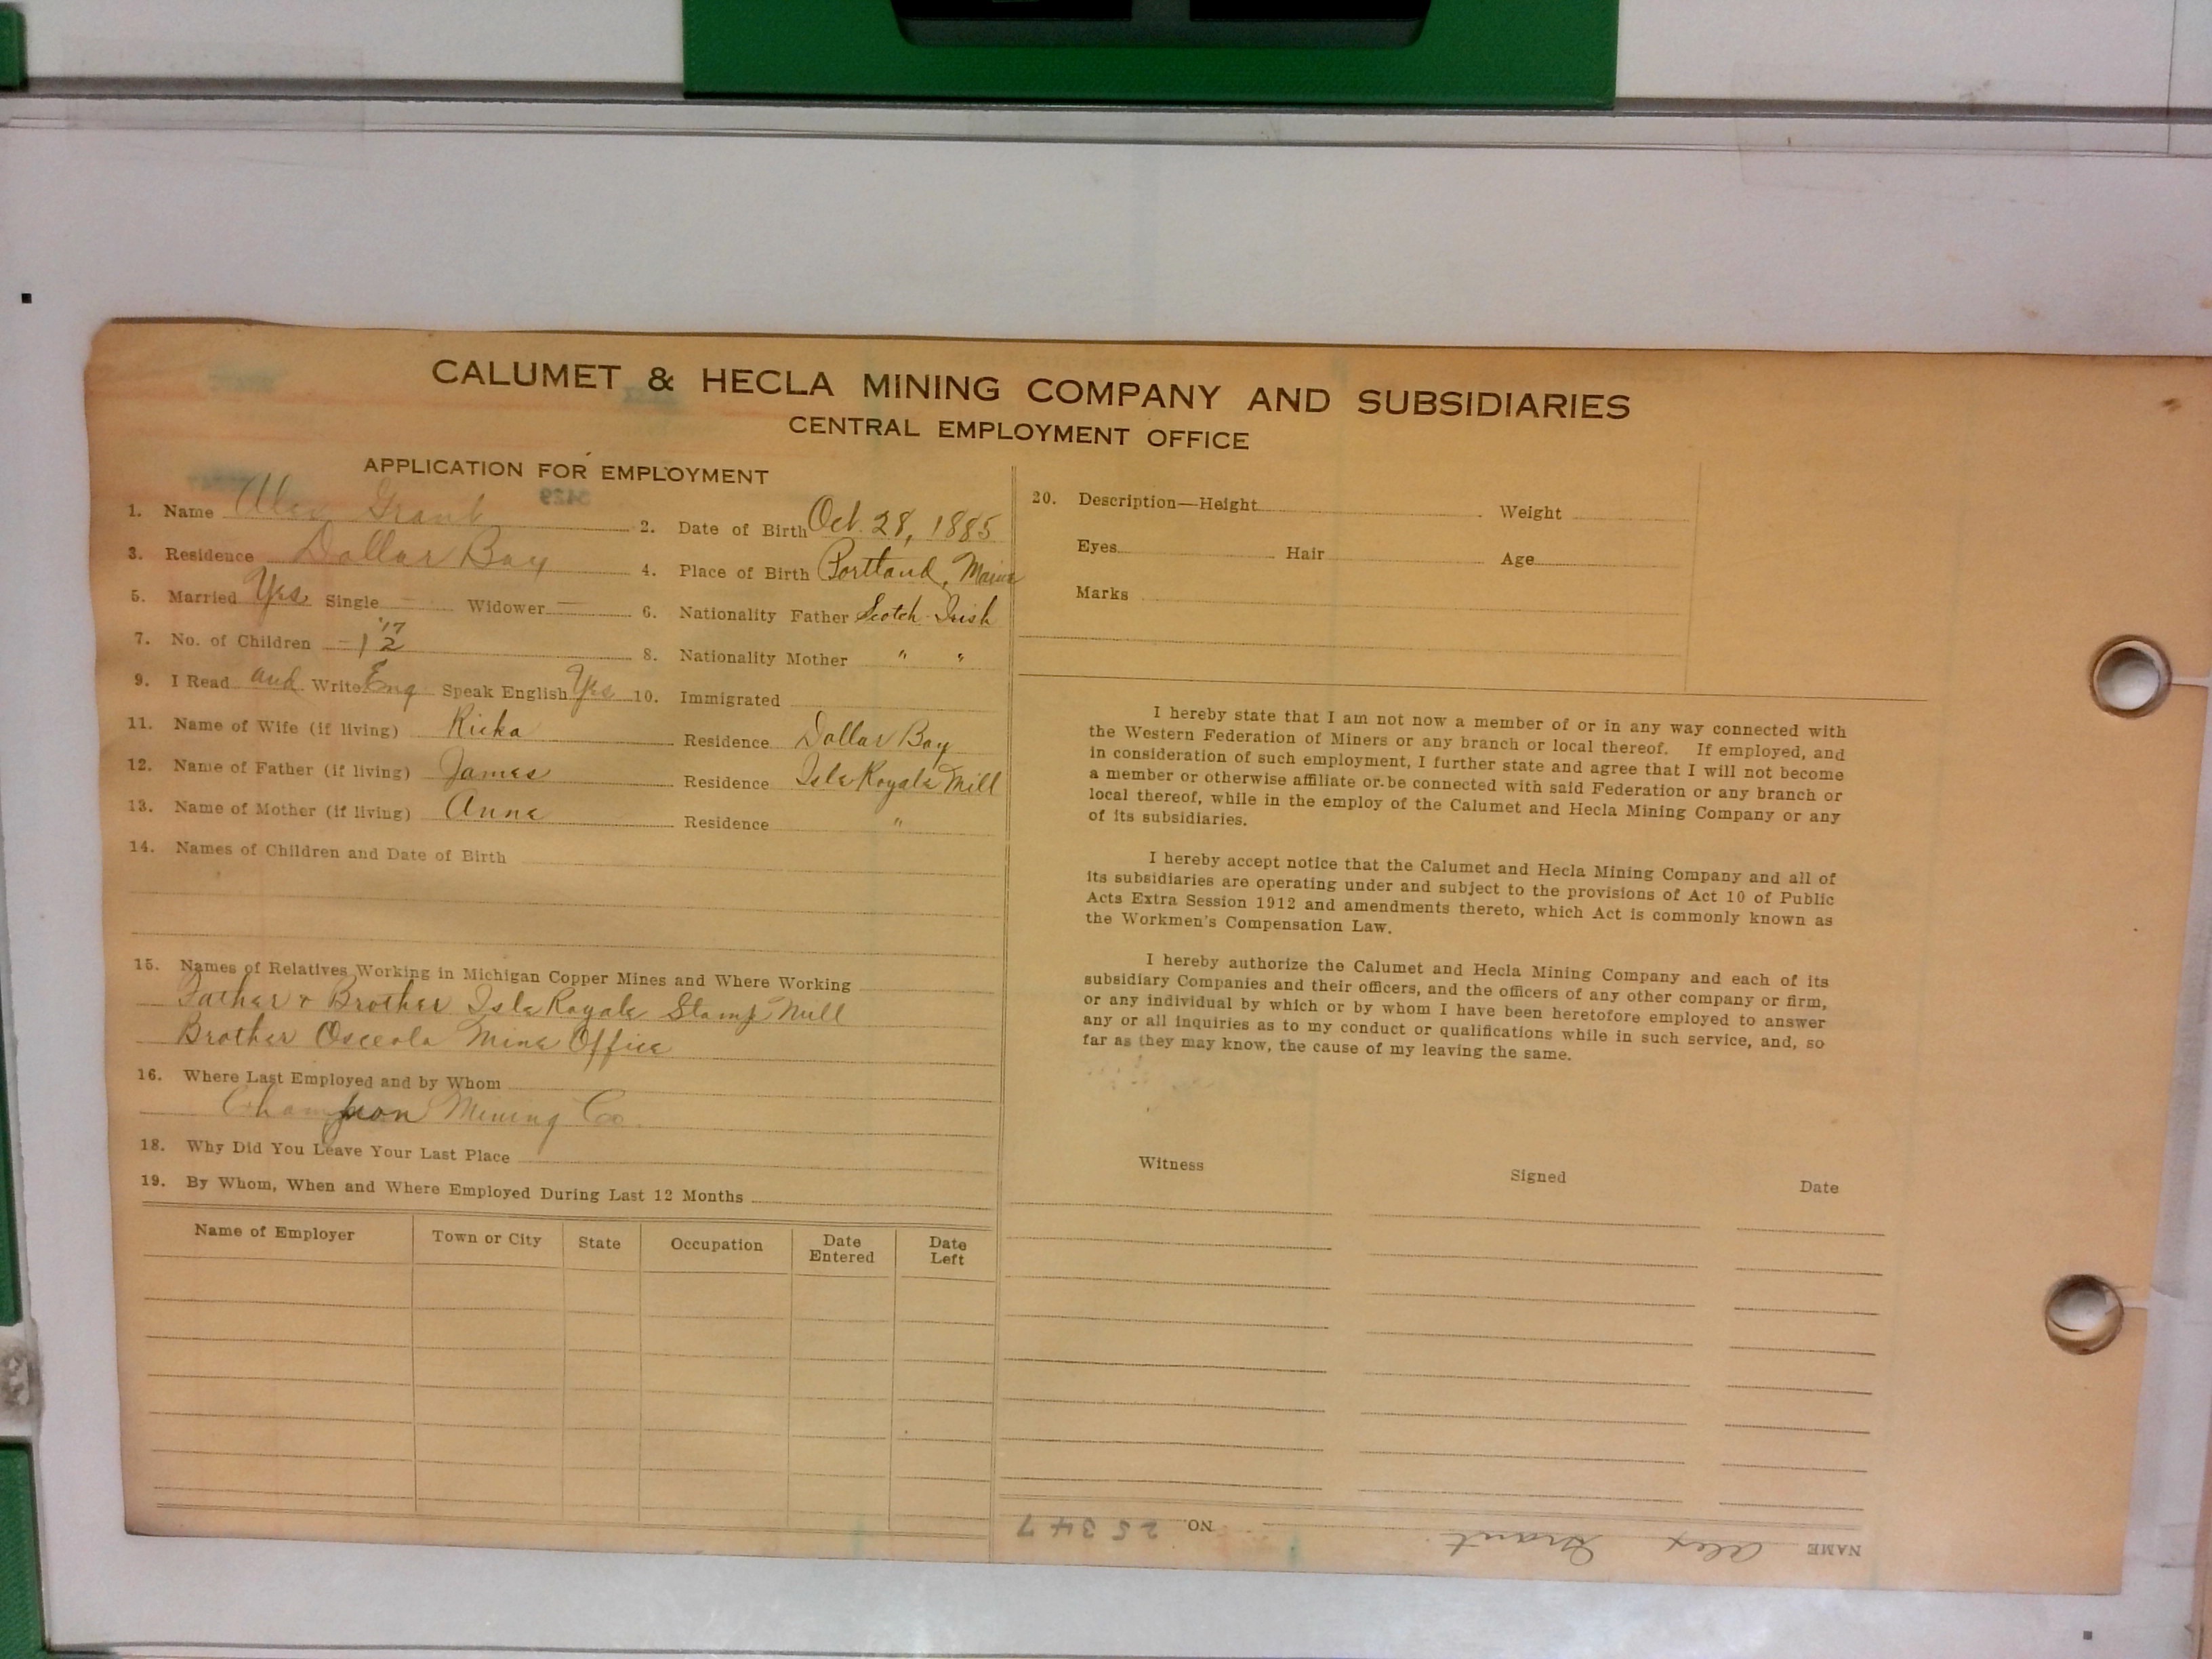 CALUMET & HECLA MINING COMPANY AND SUBSIDIARIES
CENTRAL EMPLOYMENT OFFICE
APPLICATION FOR EMPLOYMENT
1. Name Alex Grant 2. Date of Birth Oct. 28, 1885
3. Residence Dollar Bay 4. Place of Birth Portland, Maine
5. Married Yes Single — Widower — 6. Nationality Father Scotch-Irish
7. No. of Children – 1 '17 2 8. Nationality Mother " "
9. I Read and Write Eng Speak English Yes 10. Immigrated
11. Name of Wife (if living) Ricka Residence Dollar Bay
12. Name of Father (if living) James Residence Isle Royale Mill
13. Name of Mother (if living) Anna Residence "
14. Names of Children and Date of Birth
15. Names of Relatives Working in Michigan Copper Mines and Where Working
Father & Brother Isle Royale Stamp Mill
Brother Osceola Mine Office
16. Where Last Employed and by Whom
Champion Mining Co.
18. Why Did You Leave Your Last Place
19. By Whom, When and Where Employed During Last 12 Months
Name of Employer Town or City State Occupation Date Entered Date Left
20. Description—Height Weight
Eyes Hair Age
Marks
I hereby state that I am not now a member of or in any way connected with
the Western Federation of Miners or any branch or local thereof. If employed, and
in consideration of such employment, I further state and agree that I will not become
a member or otherwise affiliate or be connected with said Federation or any branch or
local thereof, while in the employ of the Calumet and Hecla Mining Company or any
of its subsidiaries.
I hereby accept notice that the Calumet and Hecla Mining Company and all of
its subsidiaries are operating under and subject to the provisions of Act 10 of Public
Acts Extra Session 1912 and amendments thereto, which Act is commonly known as
the Workmen's Compensation Law.
I hereby authorize the Calumet and Hecla Mining Company and each of its
subsidiary Companies and their officers, and the officers of any other company or firm,
or any individual by which or by whom I have been heretofore employed to answer
any or all inquiries as to my conduct or qualifications while in such service, and, so
far as they may know, the cause of my leaving the same.
Witness Signed Date
NAME Alex Grant NO. 25347